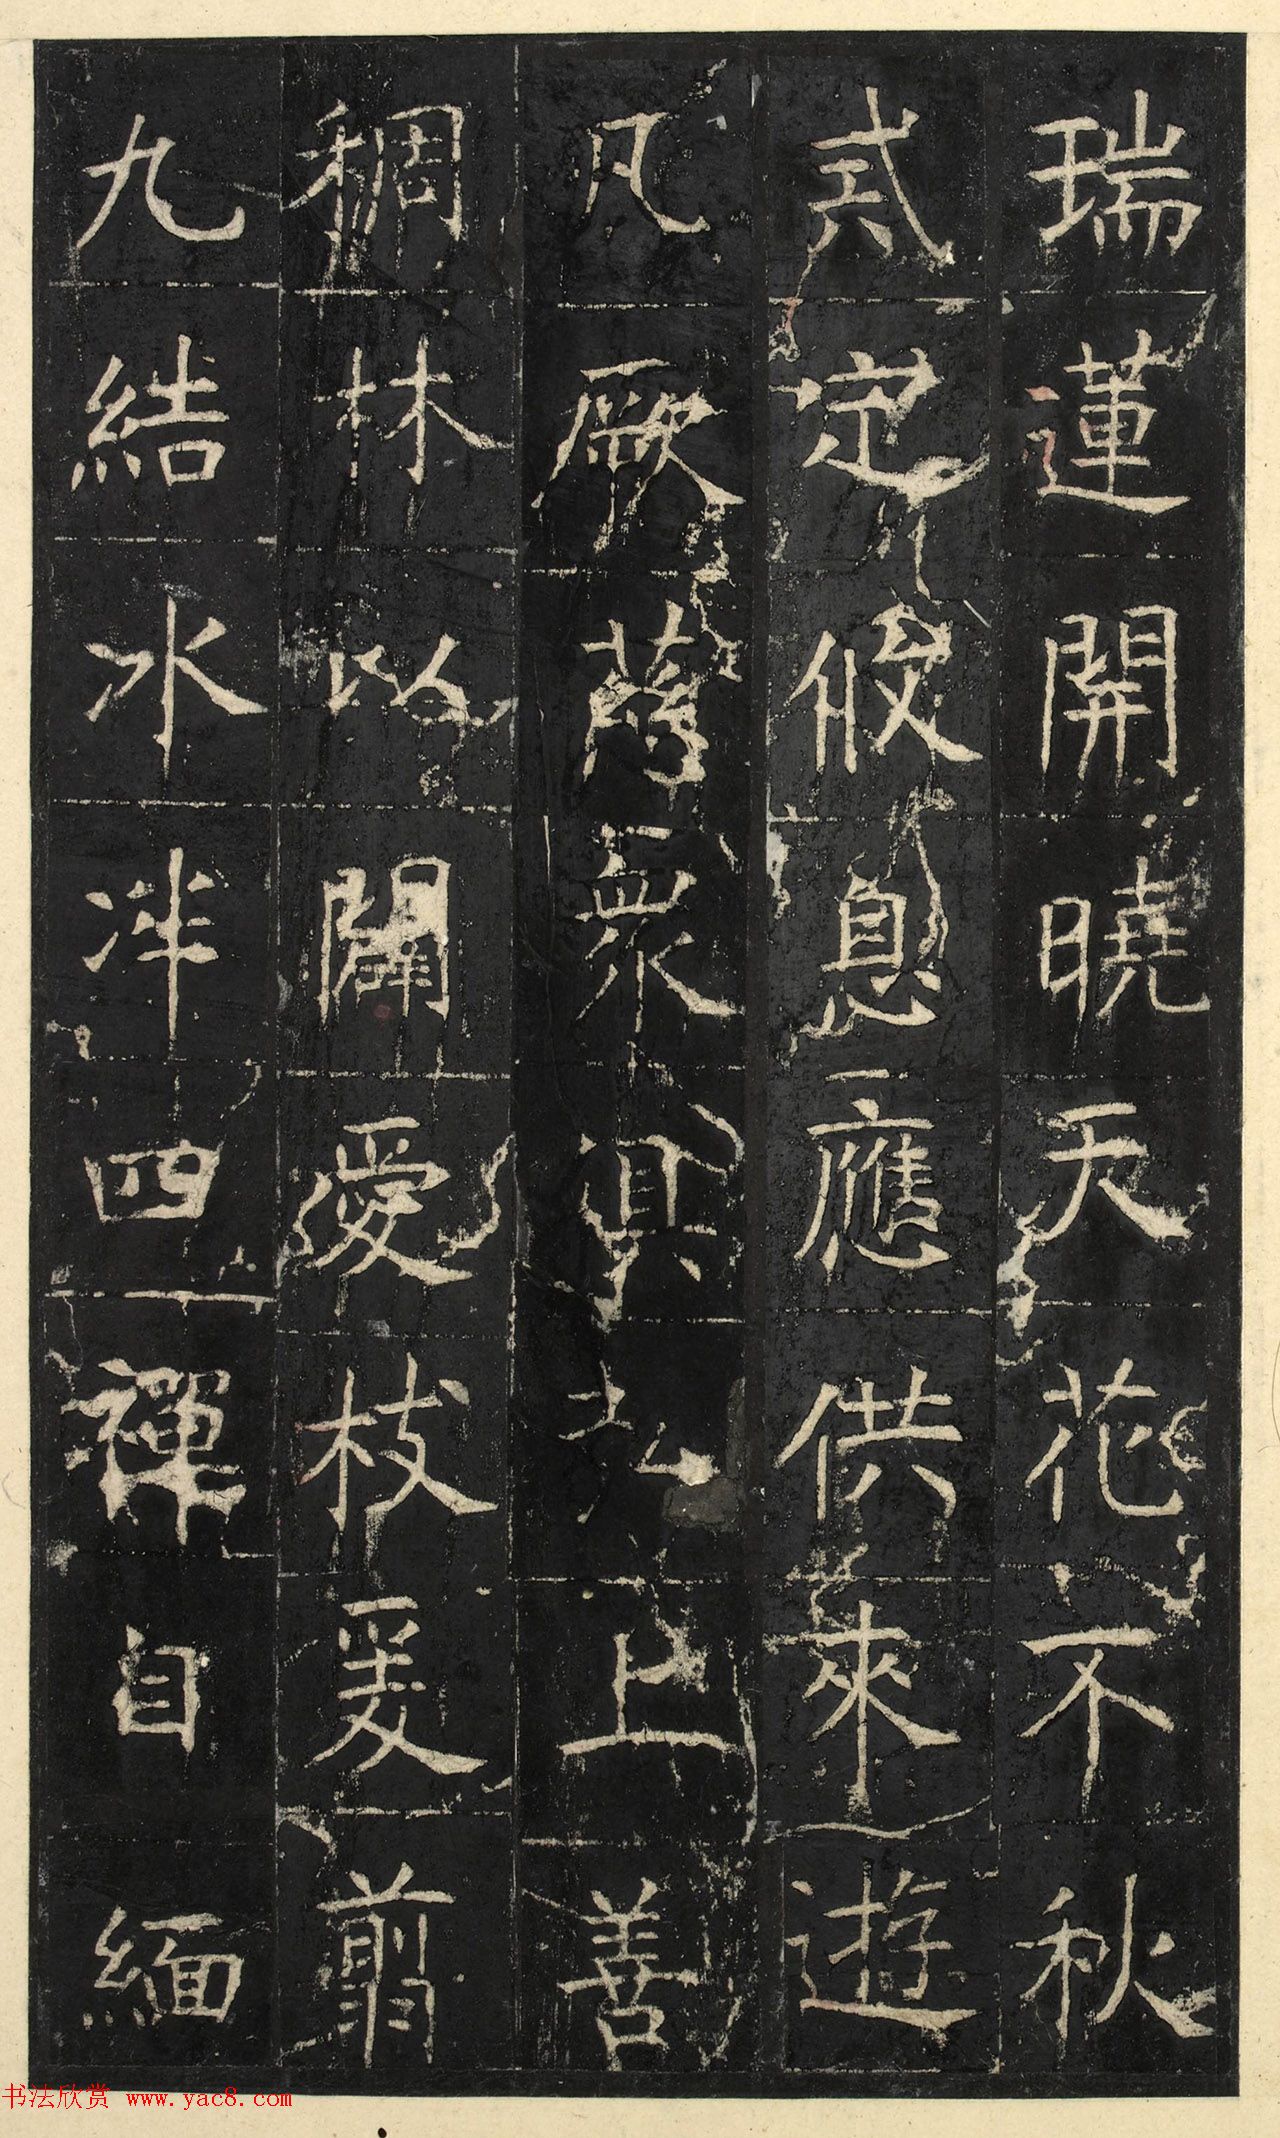 瑞蓮開曉天花不秋
貳定攸息應供來遊
凡厥蒪眾俱弘上善
稠林以闢愛枝爰翦
九結冰泮四禪自緬
书法欣赏 www.yac8.com